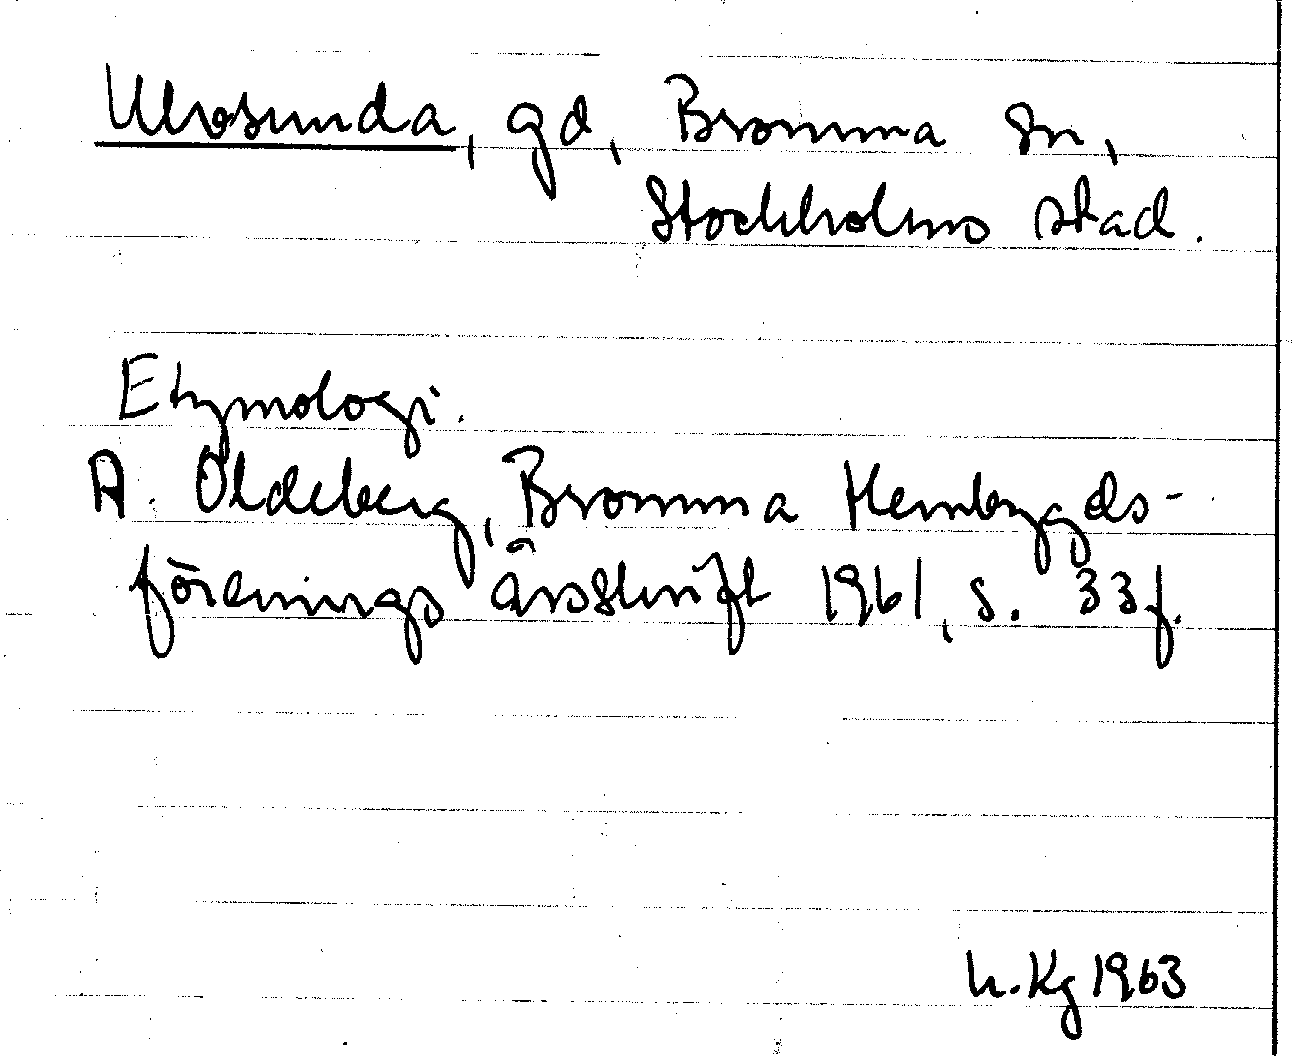 Ulvsunda, gd, Bromma sn,
Stockholms stad.
Etymologi.
A. Oldeberg, Bromma Hembygds-
förenings årsskrift 1961, s. 33f.
h. Kg 1963